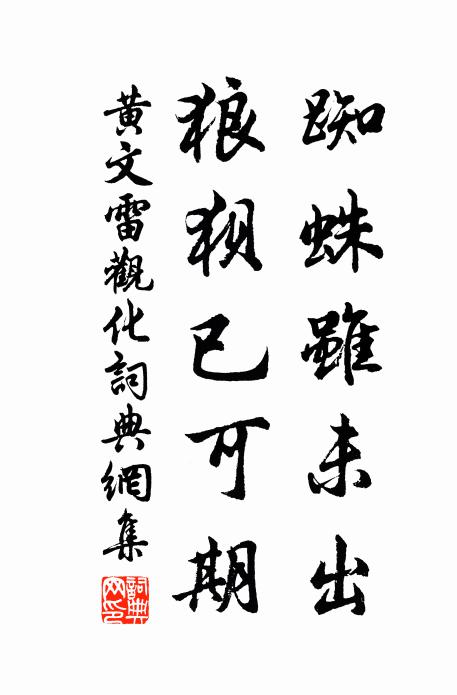 踟蛛雖未出
狼狽已可期
黃文雷觀化詞典網集
詞典網印